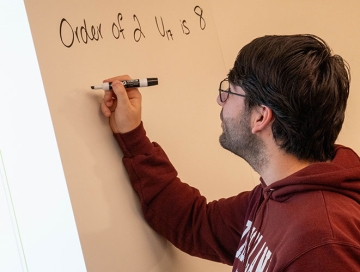 Order of 2 U₁₇ is 8